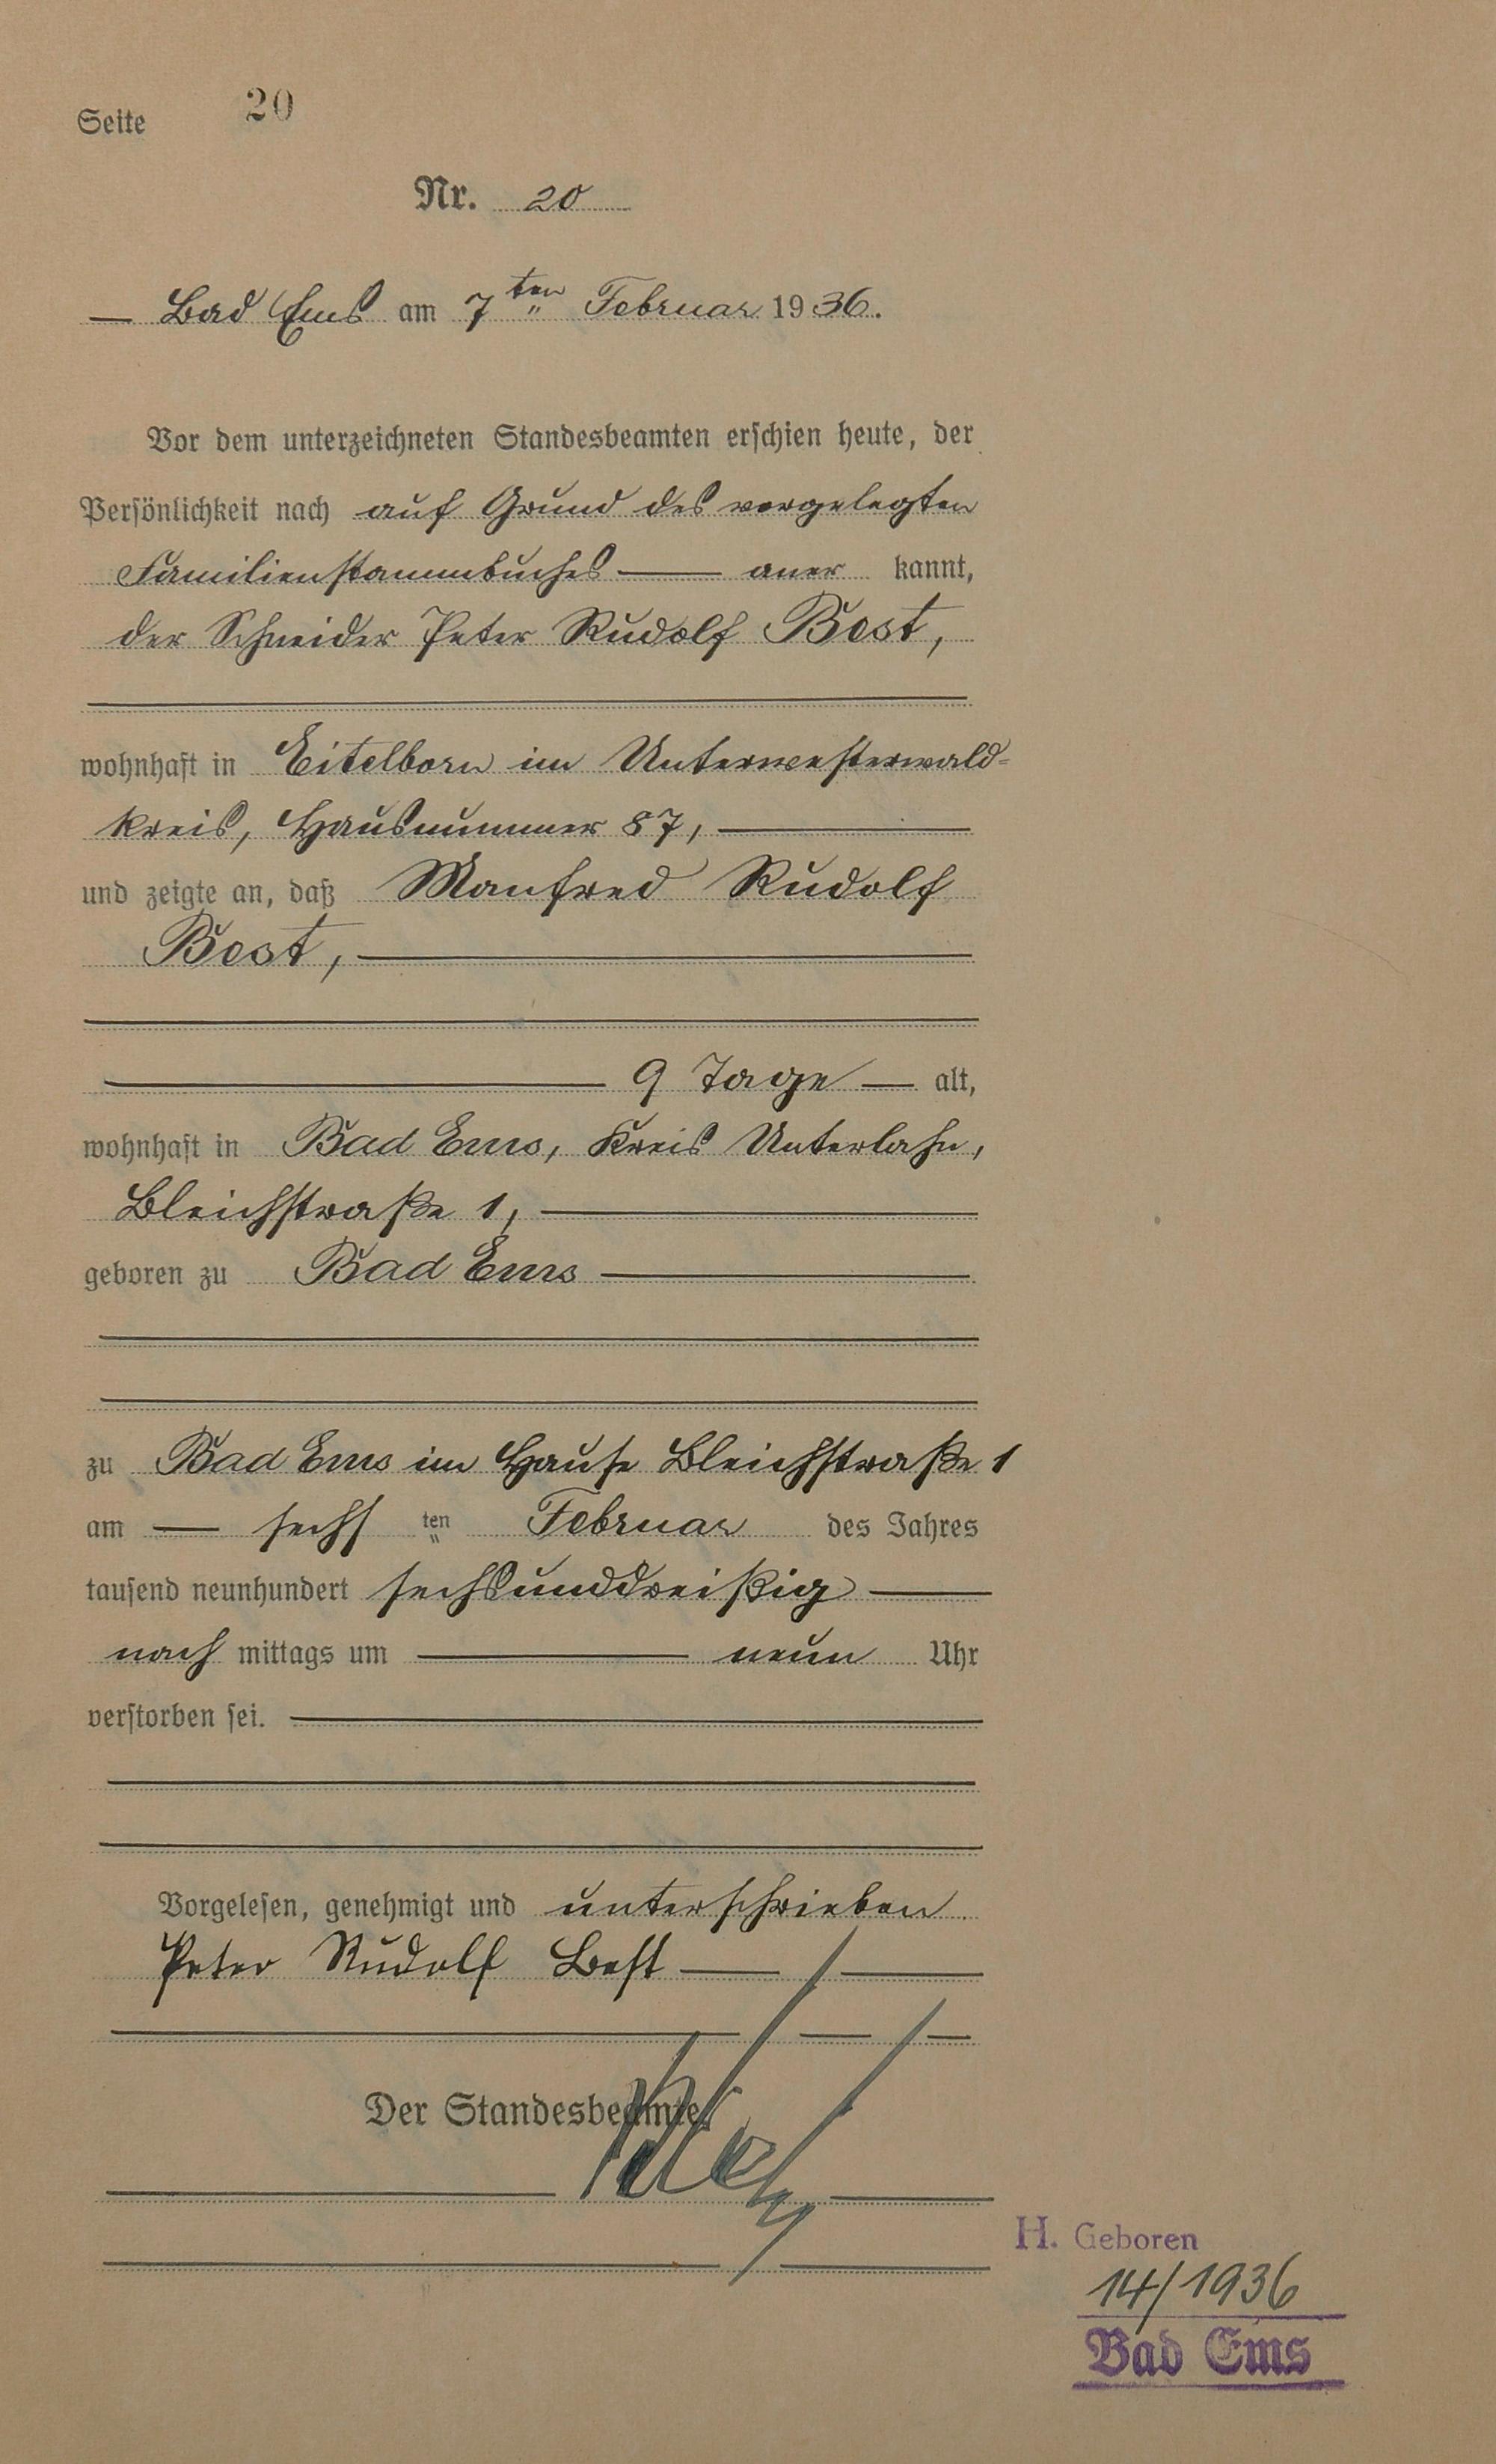 Seite 20
Nr. 20
Bad Ems am 7ten Februar 1936.
Vor dem unterzeichneten Standesbeamten erschien heute, der
Persönlichkeit nach auf Grund des vorgelegten
Familienstammbuches aner kannt,
der Schneider Peter Rudolf Best,
wohnhaft in Eitelborn im Unterwesterwald-
kreis, Hausnummer 87,
und zeigte an, daß Manfred Rudolf
Best,
9 Tage alt,
wohnhaft in Bad Ems, Kreis Unterlahn,
Bleichstraße 1,
geboren zu Bad Ems
zu Bad Ems im Hause Bleichstraße 1
am sechs ten Februar des Jahres
tausend neunhundert sechsunddreißig
nach mittags um neun Uhr
verstorben sei.
Vorgelesen, genehmigt und unterschrieben
Peter Rudolf Best
Der Standesbeamte.
H. Geboren
14/1936
Bad Ems